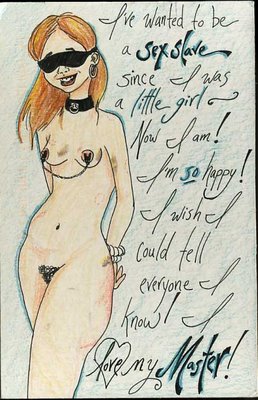 I've wanted to be
a sex slave
since I was
a little girl
Now I am!
I'm so happy!
I wish I
could tell
everyone I
know! I
love my Master!